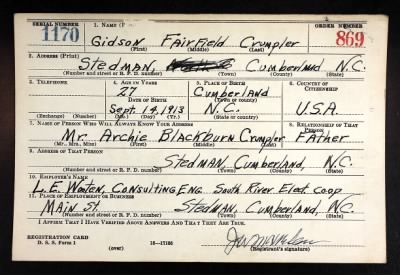 SERIAL NUMBER 1. NAME ORDER NUMBER
1170 Gidson Fairfield Crumpler 869
(First) (Middle) (Last)
2. ADDRESS (Print)
Stedman, Cumberland, N.C.
(Number and street or R. F. D. number) (Town) (County) (State)
3. TELEPHONE 4. AGE IN YEARS 5. PLACE OF BIRTH 6. COUNTRY OF CITIZENSHIP
27 Cumberland
DATE OF BIRTH (Town or county)
Sept. 14, 1913 N.C. U.S.A
(Exchange) (Number) (Mo.) (Day) (Yr.) (State or country)
7. NAME OF PERSON WHO WILL ALWAYS KNOW YOUR ADDRESS 8. RELATIONSHIP OF THAT PERSON
Mr. Archie Blackburn Crumpler Father
(Mr., Mrs., Miss) (First) (Middle) (Last)
9. ADDRESS OF THAT PERSON
Stedman, Cumberland, N.C.
(Number and street or R. F. D. number) (Town) (County) (State)
10. EMPLOYER'S NAME
L.E. Wooten, Consulting Eng. South River Elect. Coop
11. PLACE OF EMPLOYMENT OR BUSINESS
Main St. Stedman, Cumberland, N.C.
(Number and street or R. F. D. number) (Town) (County) (State)
I AFFIRM THAT I HAVE VERIFIED ABOVE ANSWERS AND THAT THEY ARE TRUE.
REGISTRATION CARD
D. S. S. Form 1 (over) 16-17105
(Registrant's signature)